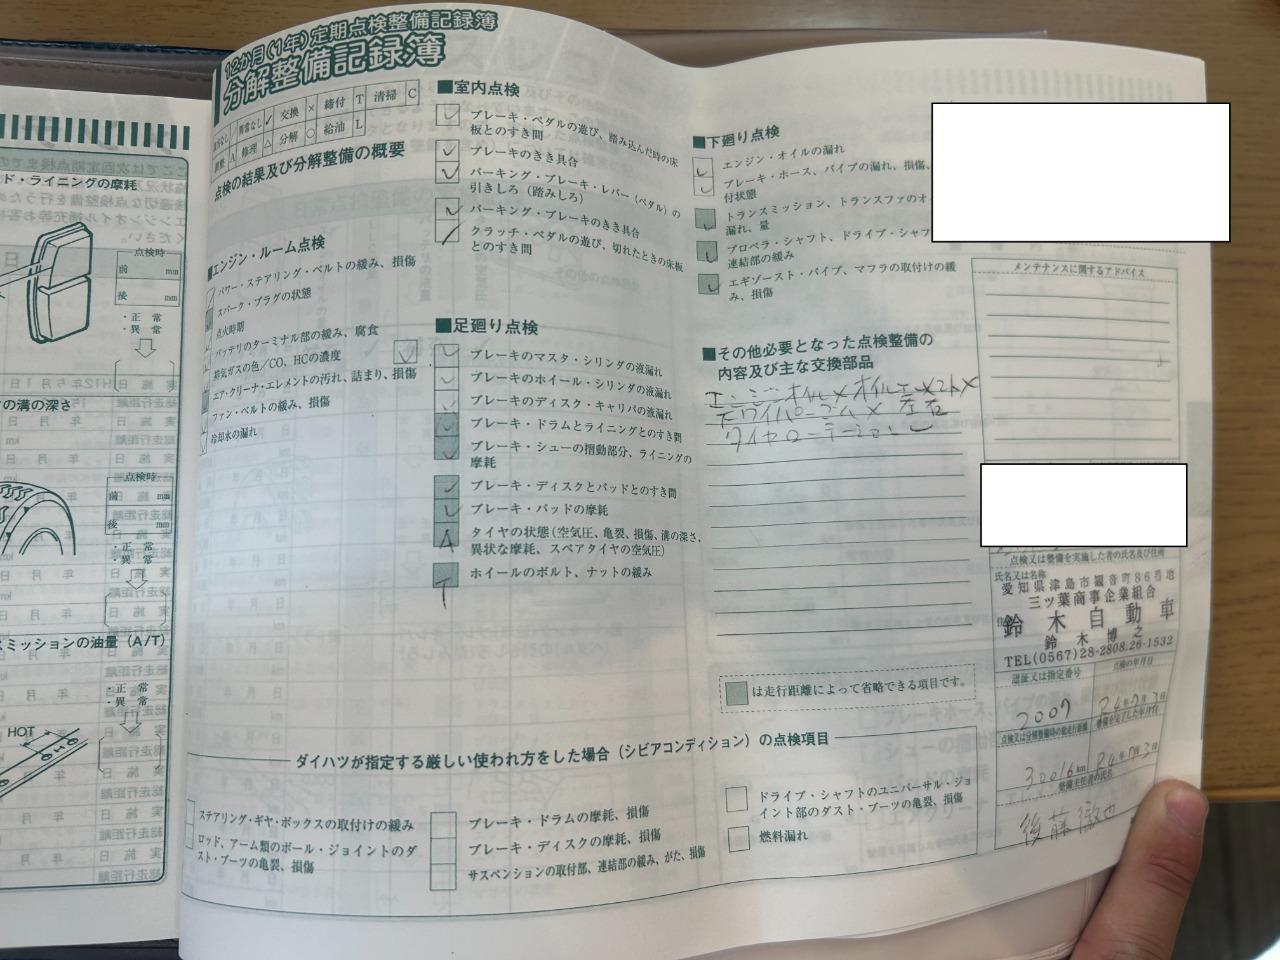 ド・ライニングの摩耗
点検時
前 mm
後 mm
・正 常
・異 常
の溝の深さ
点検時
前 mm
後 mm
・正 常
・異 常
ミッションの油量（A/T）
・正 常
・異 常
HOT
12か月（1年）定期点検整備記録簿
分解整備記録簿
異常なし ✓ 交換 × 締付 T 清掃 C
調整 A 修理 △ 分解 ○ 給油 L
点検の結果及び分解整備の概要
■エンジン・ルーム点検
パワー・ステアリング・ベルトの緩み、損傷
スパーク・プラグの状態
点火時期
バッテリのターミナル部の緩み、腐食
排気ガスの色／CO、HCの濃度
エア・クリーナ・エレメントの汚れ、詰まり、損傷
ファン・ベルトの緩み、損傷
冷却水の漏れ
■室内点検
ブレーキ・ペダルの遊び、踏み込んだ時の床
板とのすき間
ブレーキのきき具合
パーキング・ブレーキ・レバー（ペダル）の
引きしろ（踏みしろ）
パーキング・ブレーキのきき具合
クラッチ・ペダルの遊び、切れたときの床板
とのすき間
■足廻り点検
ブレーキのマスタ・シリンダの液漏れ
ブレーキのホイール・シリンダの液漏れ
ブレーキのディスク・キャリパの液漏れ
ブレーキ・ドラムとライニングとのすき間
ブレーキ・シューの摺動部分、ライニングの
摩耗
ブレーキ・ディスクとパッドとのすき間
ブレーキ・パッドの摩耗
A タイヤの状態（空気圧、亀裂、損傷、溝の深さ、
異状な摩耗、スペアタイヤの空気圧）
T ホイールのボルト、ナットの緩み
■下廻り点検
エンジン・オイルの漏れ
ブレーキ・ホース、パイプの漏れ、損傷、
付状態
トランスミッション、トランスファのオ
漏れ、量
プロペラ・シャフト、ドライブ・シャフ
連結部の緩み
エギゾースト・パイプ、マフラの取付けの緩
み、損傷
■その他必要となった点検整備の
内容及び主な交換部品
エンジンオイル× オイルエレメント×
ワイパーゴム× 左右
タイヤローテーション
は走行距離によって省略できる項目です。
メンテナンスに関するアドバイス
点検又は整備を実施した者の氏名及び住所
氏名又は名称
愛知県津島市観音町86番地
三ツ葉商事企業組合
鈴木自動車
鈴木博之
TEL(0567)28-2808.26-1532
認証又は指定番号
点検の年月日
2007
R4年7月3日
点検又は分解整備時の総走行距離
整備を完了した年月日
30016km
R4年7月3日
整備主任者の氏名
後藤徹也
ダイハツが指定する厳しい使われ方をした場合（シビアコンディション）の点検項目
ステアリング・ギヤ・ボックスの取付けの緩み
ロッド、アーム類のボール・ジョイントのダ
スト・ブーツの亀裂、損傷
ブレーキ・ドラムの摩耗、損傷
ブレーキ・ディスクの摩耗、損傷
サスペンションの取付部、連結部の緩み、がた、損傷
ドライブ・シャフトのユニバーサル・ジョ
イント部のダスト・ブーツの亀裂、損傷
燃料漏れ